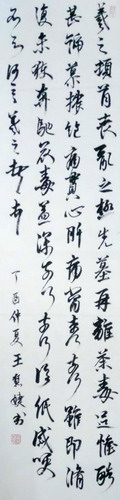 羲之頓首喪亂之極先墓再離荼毒追惟酷
甚號慕摧絕痛貫心肝痛當奈何奈何雖即脩
復未獲奔馳哀毒益深奈何奈何臨紙感哽
不知何言羲之頓首頓首
丁酉仲夏王書